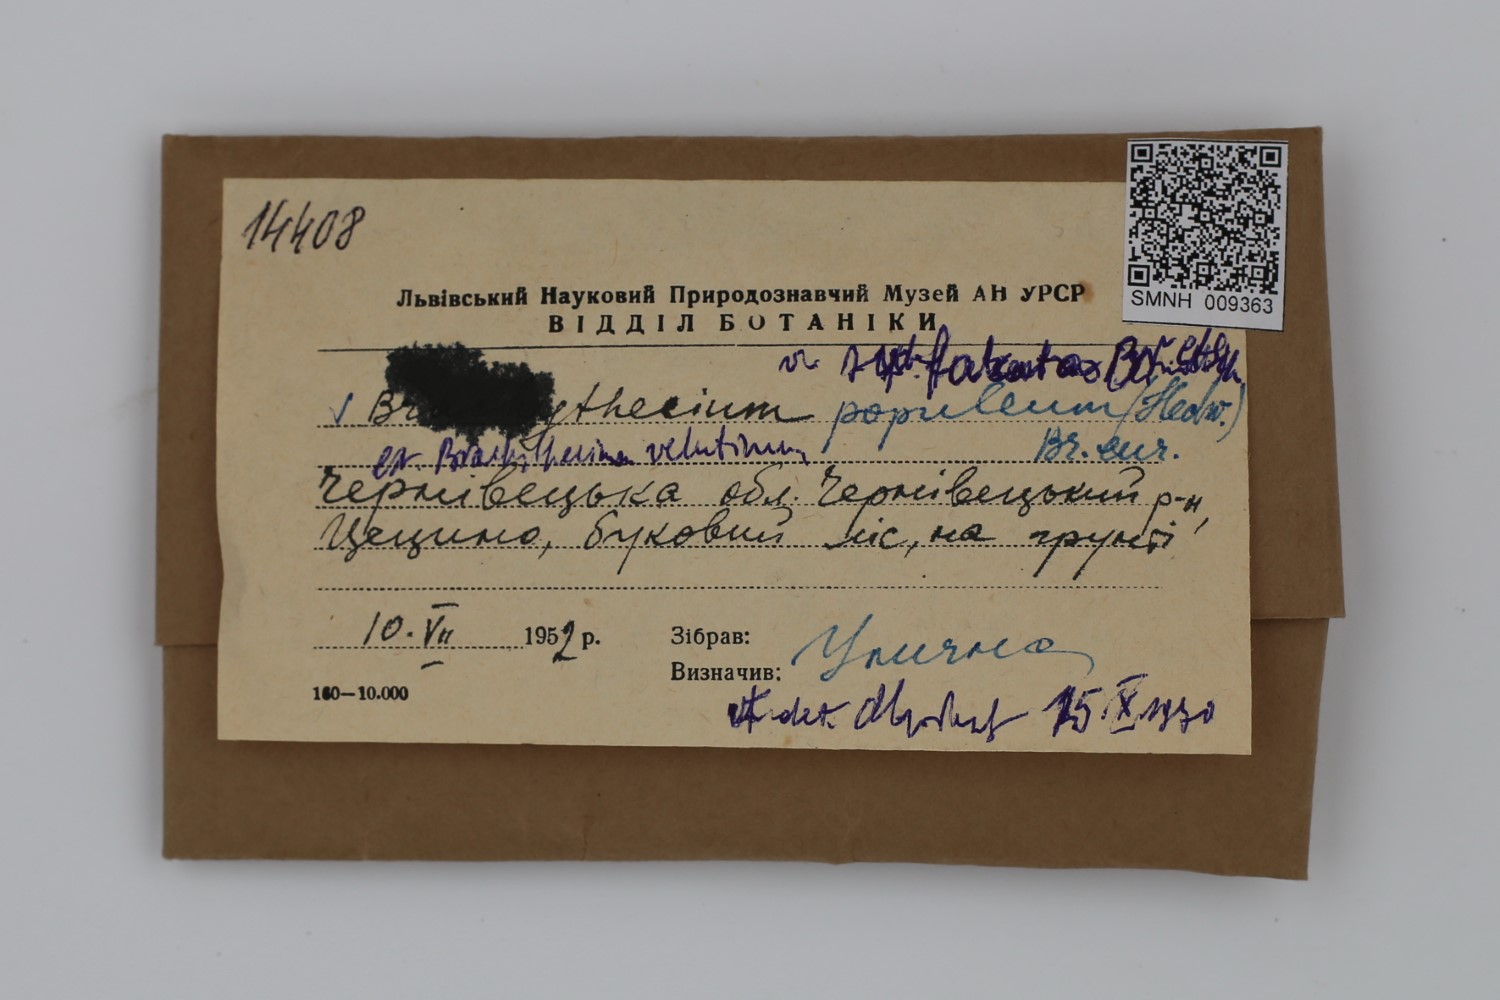 14408
SMNH 009363
Львівський Науковий Природознавчий Музей АН УРСР
ВІДДІЛ БОТАНІКИ
v.
Br ythecium populeum (Hedw.)
et. Brachithecium velutinum Br. eur.
Чернівецька обл. Чернівецький р-н,
Цецино, буковий ліс, на грунті
10.VII 1952 р. Зібрав: Улична
Визначив:
160—10.000
det. 15 X 1970